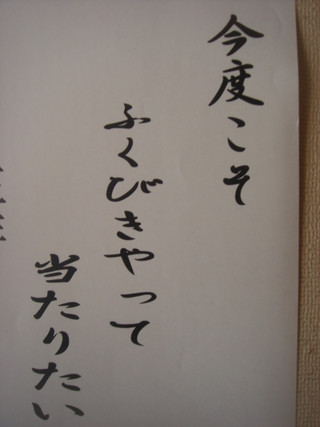 今度こそ
ふくびきやって
当たりたい